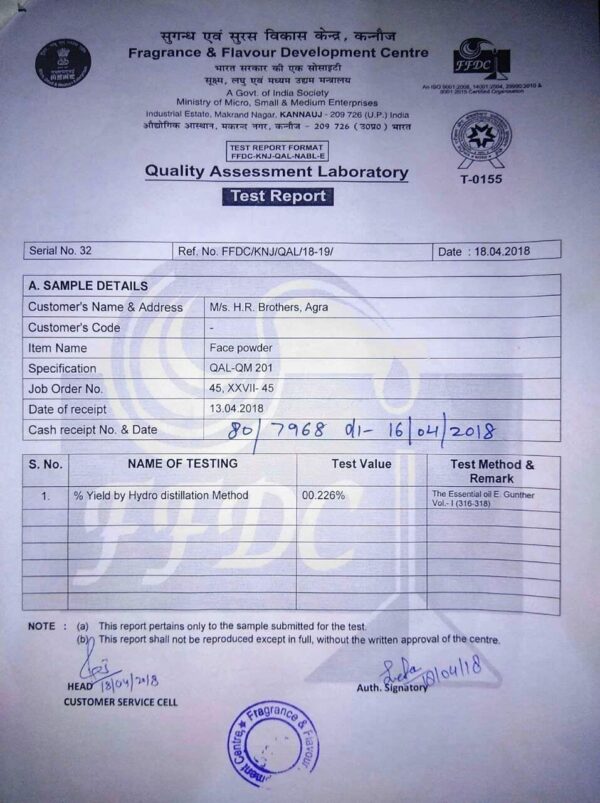 सुगन्ध एवं सुरस विकास केन्द्र, कन्नौज
Fragrance & Flavour Development Centre
भारत सरकार की एक सोसाइटी
सूक्ष्म, लघु एवं मध्यम उद्यम मन्त्रालय
A Govt. of India Society
Ministry of Micro, Small & Medium Enterprises
Industrial Estate, Makrand Nagar, KANNAUJ - 209 726 (U.P.) India
औद्योगिक आस्थान, मकरन्द नगर, कन्नौज - 209 726 (उ०प्र०) भारत
FFDC
An ISO 9001:2008, 14001:2004, 22000:2010 &
9001:2015 Certified Organisation
TEST REPORT FORMAT
FFDC-KNJ-QAL-NABL-E
Quality Assessment Laboratory
Test Report
T-0155
Serial No. 32 Ref. No. FFDC/KNJ/QAL/18-19/ Date : 18.04.2018
A. SAMPLE DETAILS
Customer's Name & Address M/s. H.R. Brothers, Agra
Customer's Code -
Item Name Face powder
Specification QAL-QM 201
Job Order No. 45, XXVII- 45
Date of receipt 13.04.2018
Cash receipt No. & Date 80/7968 dt- 16/04/2018
S. No. NAME OF TESTING Test Value Test Method & Remark
1. % Yield by Hydro distillation Method 00.226% The Essential oil E. Gunther
Vol.- I (316-318)
FFDC
NOTE : (a) This report pertains only to the sample submitted for the test.
(b) This report shall not be reproduced except in full, without the written approval of the centre.
HEAD 18/04/2018
CUSTOMER SERVICE CELL
Auth. Signatory 18/04/18
Fragrance & Flavour
ment Centre,